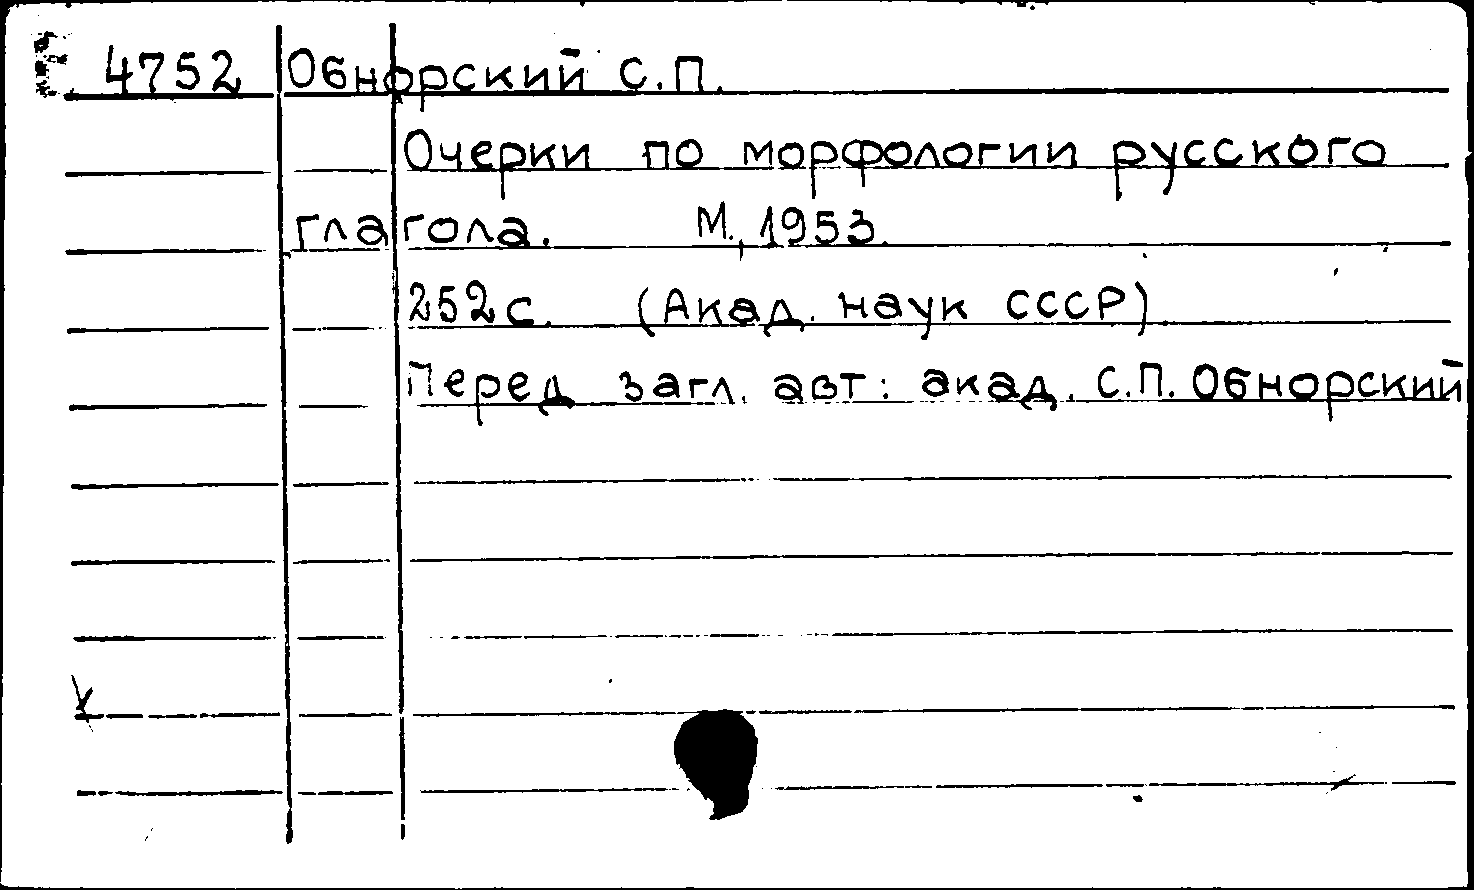 4752 Обнорский С.П.
Очерки по морфологии русского
глагола. М., 1953.
252 с. (Акад. наук СССР)
Перед загл. авт: акад. С.П. Обнорский